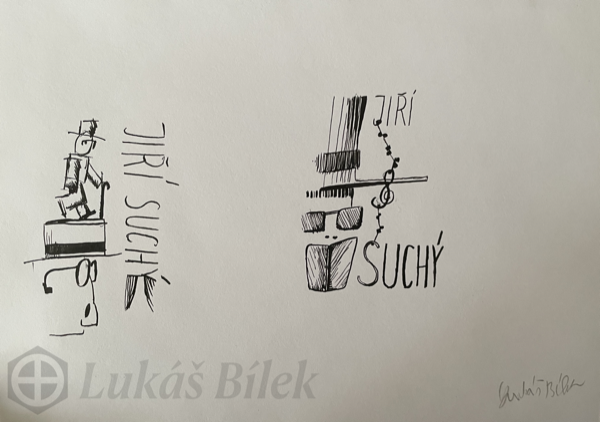 JIŘÍ SUCHÝ
JIŘÍ
SUCHÝ
Lukáš Bílek
Lukáš Bílek